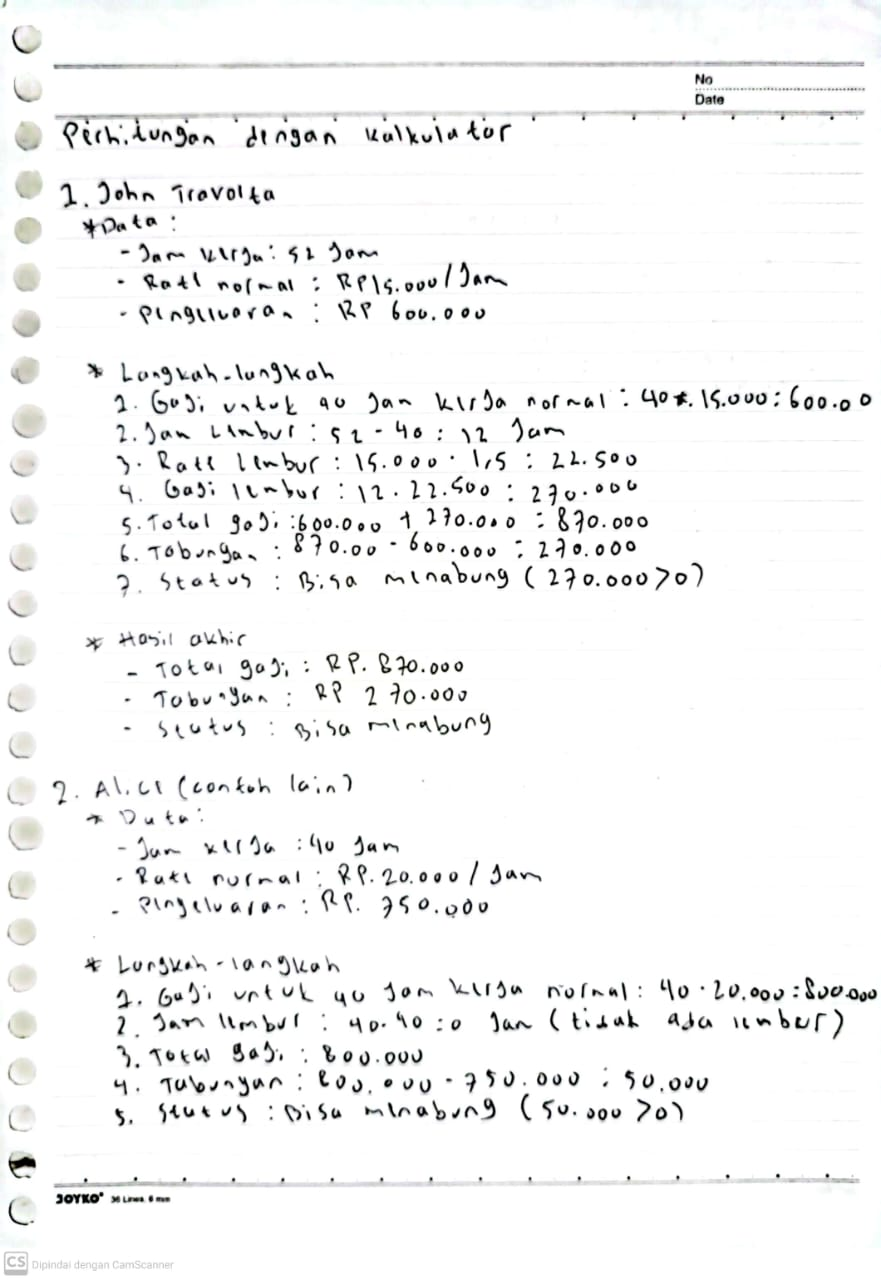 No
Date
Perhitungan dengan kalkulator
1. John Travolta
*Data :
- Jam kerja : 52 Jam
- Rate normal : RP15.000/Jam
- Pengeluaran : RP 600.000
* Langkah-langkah
1. Gaji untuk 40 Jam kerja normal : 40 . 15.000 : 600.00
2. Jam Lembur : 52 - 40 : 12 Jam
3. Rate lembur : 15.000 . 1,5 : 22.500
4. Gaji lembur : 12 . 22.500 : 270.000
5. Total gaji : 600.000 + 270.000 = 870.000
6. Tabungan : 870.00 - 600.000 = 270.000
7. Status : Bisa menabung (270.000>0)
* Hasil akhir
- Total gaji : RP. 870.000
- Tabungan : RP 270.000
- Status : Bisa menabung
2. Alice (contoh lain)
* Data :
- Jam kerja : 40 Jam
- Rate normal : RP. 20.000 / Jam
- Pengeluaran : RP. 750.000
* Langkah-langkah
1. Gaji untuk 40 Jam kerja normal : 40 . 20.000 : 800.000
2. Jam lembur : 40-40 : 0 Jam (tidak ada lembur)
3. Total gaji : 800.000
4. Tabungan : 800.000 - 750.000 : 50.000
5. Status : Bisa menabung (50.000 >0)
JOYKO 36 Lines. 6 mm
CS Dipindai dengan CamScanner